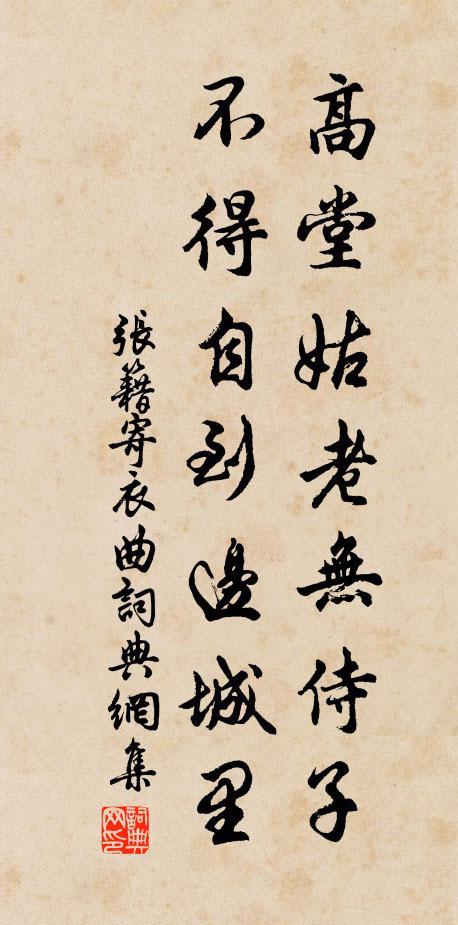 高堂姑老無侍子
不得自到邊城里
張籍寄衣曲詞典網集
詞典網印